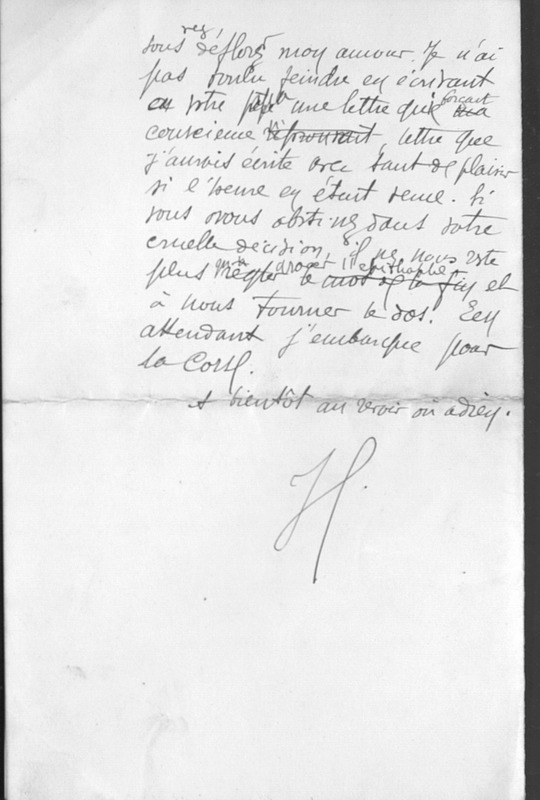 vous déflorerez mon amour. Je n'ai
pas voulu feindre en écrivant
en votre une lettre que forçant ma
conscience réprouvait, lettre que
j'aurais écrite avec tant de plaisir
si l'heure en était venue. Si
vous vous obstinez dans votre
cruelle décision, il ne nous reste
plus le mot de la fin et
à nous tourner le dos. En
attendant j'embarque pour
la Corse.
A bientôt au revoir ou adieu.
H.